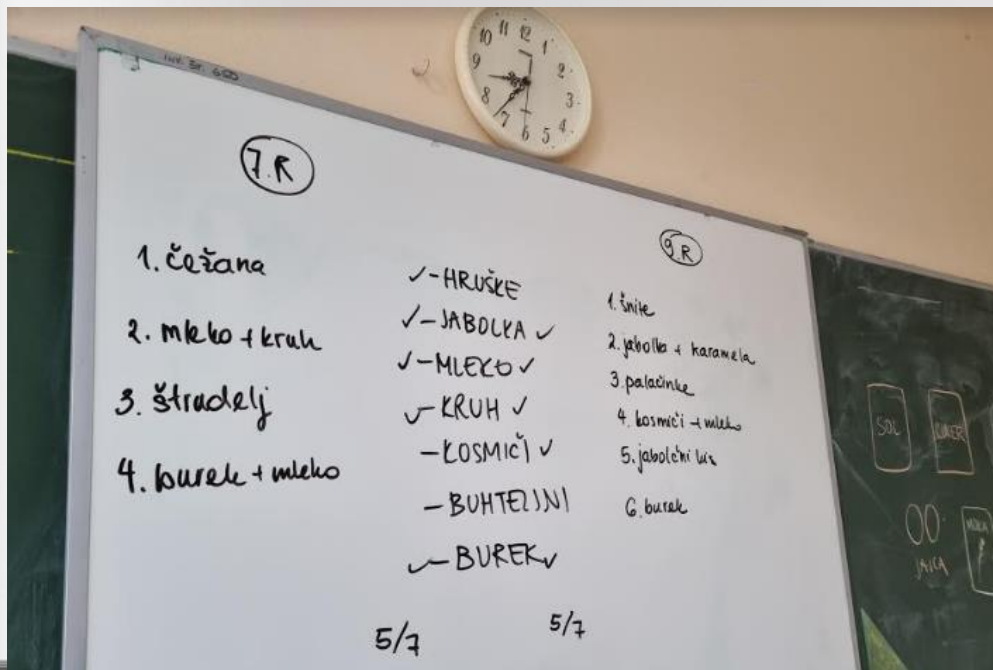 INV. ŠT. 650
12
11
1
10
2
9
3
8
4
7
5
6
7.R
1. čežana
2. mleko + kruh
3. štrudelj
4. burek + mleko
✓-HRUŠKE
✓-JABOLKA ✓
✓-MLEKO ✓
✓-KRUH ✓
-KOSMIČI ✓
-BUHTELJNI
✓-BUREK ✓
5/7
5/7
9.R
1. šnite
2. jabolka + karamela
3. palačinke
4. kosmiči + mleko
5. jabolčni
6. burek
SOL
CUKER
JAJCA
MOKA